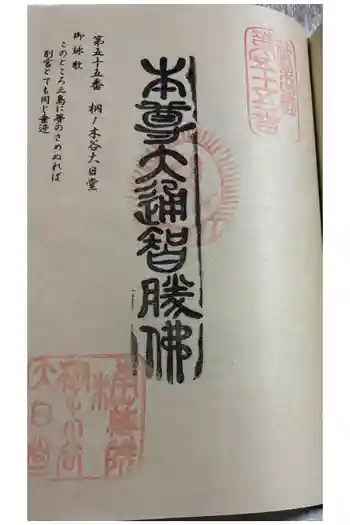 本尊大通智勝佛
第五十五番 桐ノ木谷大日堂
御詠歌
このところ三島に夢のさめぬれば
別宮とても同じ垂迹
第五十五番
大日堂